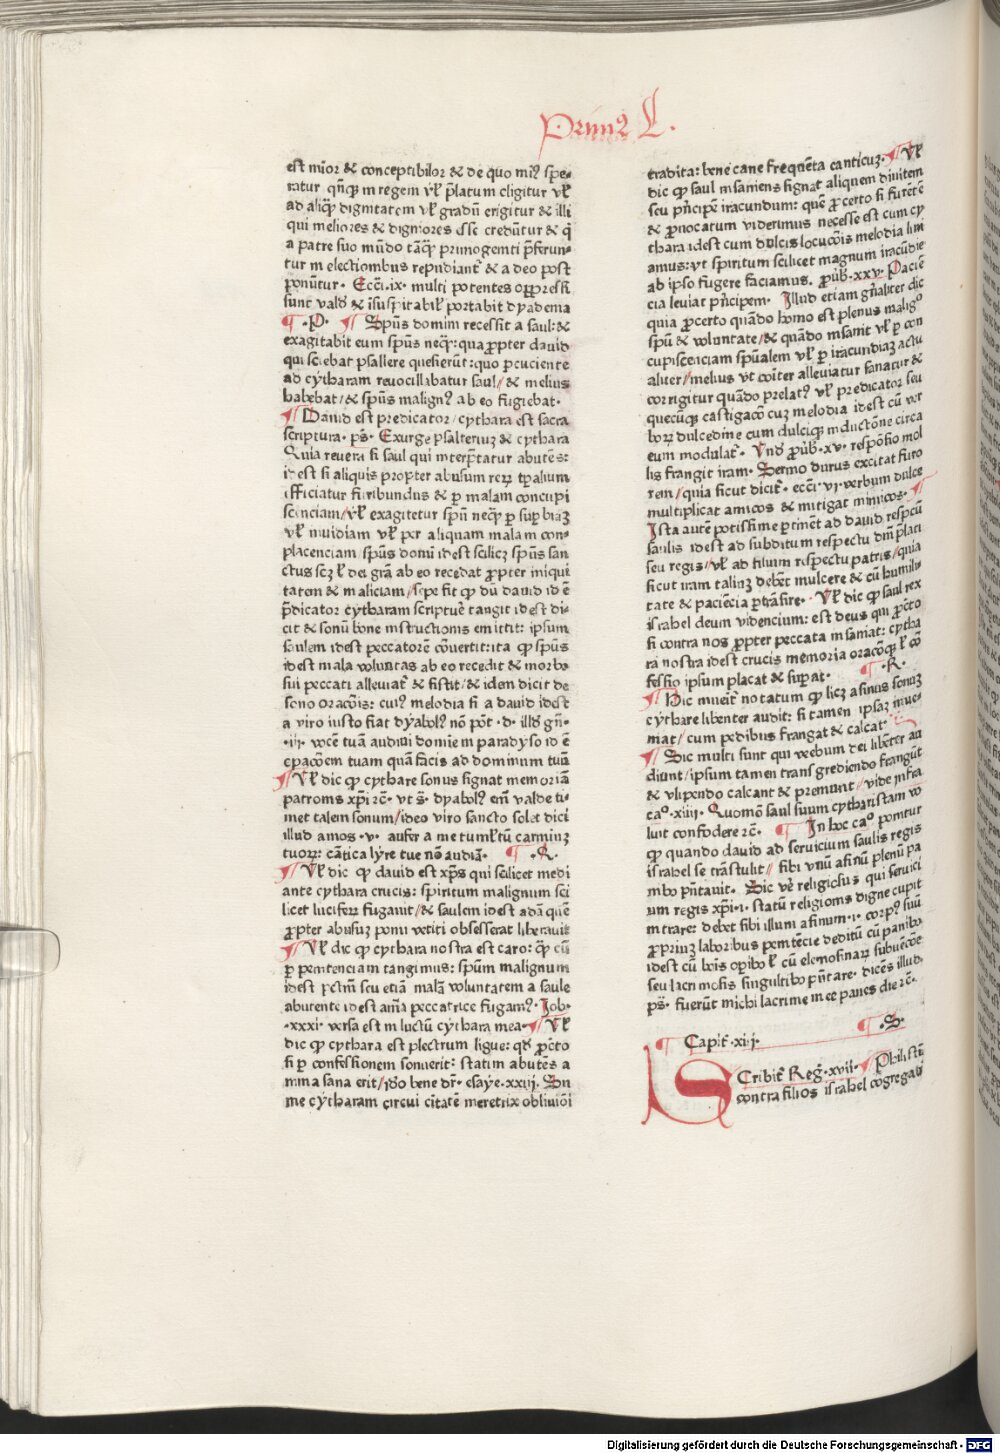 Primꝰ L.
est mīor & conceptibilor & de quo minꝰ spe-
ratur qn̄qꝫ in regem vl̄ p̄latum eligitur vl̄
ad aliqꝫ dignitatem vl̄ gradū erigitur & illi
qui meliores & digniores esse credūtur & q̄
a patre suo mūdo tāqꝫ primogeniti p̄ferun-
tur in electionibus repudiant᷑ & a deo post
ponūtur. Eccī.ix. multi potentes opp̄ressi
sunt valꝺ & īsuspitabil̓ portabit dyadema
.P. Spūs domini recessit a saul: &
exagitabit eum spūs neqꝫ: qua ꝓpter dauid
qui sciebat psallere quesierūt: quo ꝑcuciente
ad cytharam reuocillabatur saul/ & melius
habebat/ & spūs malignꝰ ab eo fugiebat.
Dauid est predicator/ cythara est sacra
scriptura. pˢ. Exurge psalteriuꝫ & cythara
Quia reuera si saul qui interp̄tatur abutēs:
idest si aliquis propter abusum reꝝ tp̄alium
efficiatur furibundus & ꝑ malam concupi
scenciam/ vl̄ exagitetur spū neqꝫ ꝑ suꝑbiaꝫ
vl̄ inuidiam vl̄ per aliquam malam con-
placenciam spūs domī idest scilicꝫ spūs san
ctus scꝫ l̄ dei grā ab eo recedat ꝓpter iniqui
tatem & maliciam/ sepe fit qꝫ dū dauid id ē
p̄dicator cytharam scripture tangit idest di-
cit & sonū bone instructionis emittit: ipsum
saulem idest peccatorē cōuertit: ita qꝫ spūs
idest mala voluntas ab eo recedit & morbo
sui peccati alleuiat᷑ & sistit/ & idem dicit de
sono oracōis: cuiꝰ melodia si a dauid idest
a viro iusto fiat dyabolꝰ nō pōt .d. illꝺ gn̄.
.iii. vocē tuā audiui domine in paradyso id ē
oracōem tuam quā facis ad dominum tuū
Vl̄ dic qꝫ cythare sonus signat memoriā
patronis xp̄i ⁊c̄. vt s̄. dyabolꝰ em̄ valde ti-
met talem sonum/ ideo viro sancto solet dici
illud amos .v. aufer a me tumltū carminꝫ
tuoꝝ: cātica lyre tue nō audiā. .Q.
Vl̄ dic qꝫ dauid est xp̄s qui scilicet medi
ante cythara crucis: spiritum malignum sci
licet luciferꝝ fugauit/ & saulem idest adā quē
ꝓpter abusuꝫ pomi vetiti obsesserat liberauit
Vl̄ dic qꝫ cythara nostra est caro: q̄ꝫ cū
ꝑ penitenciam tangimus: spūm malignum
idest pctm̄ seu etiā malā voluntatem a saule
abutente idest aīa peccatrice fugamꝰ. Job.
.xxxi. versa est in luctū cythara mea. Vl̄
dic qꝫ cythara est plectrum ligue: qꝺ ꝓcto
si ꝑ confessionem sonuerit: statim abutēs a
nima sana erit/ iꝺo bene dr̄. esaye .xxiij. Su
me cytharam circui ciuitatē meretrix obliuiōi
tradita: bene cane frequēta canticuꝫ. Vl̄
dic qꝫ saul insaniens signat aliquem diuitem
seu pn̄cipē iracundum: quē ꝓcerto si furētē
& ꝓuocatum viderimus necesse est cum cy
thara idest cum dulcis locucōis melodia lini
amus: vt spiritum scilicet magnum iracūdie
ab ipso fugere faciamus. ꝓuꝺ. xxv. Paciē
cia leuiat pn̄cipem. Illud etiam gn̄aliter dic
quia ꝓcerto quādo homo est plenus malig°
spū & voluntate/ & quādo insanit vl̄ ꝑ con
cupiscenciam spūalem vl̄ ꝑ iracundiaꝫ actu
aliter/ melius vt cōiter alleuiatur sanatur &
corrigitur quādo prelatꝰ vl̄ predicator seu
quecūqꝫ castigacō cuꝫ melodia idest cū ver
boꝝ dulcedine cum dulciqꝫ inductōne circa
eum modulat᷑. Vnꝺ ꝓuꝺ .xv. respōsio mol
lis frangit iram. Sermo durus excitat furo
rem/ quia sicut dicit᷑. eccī. vi. verbum dulce
multiplicat amicos & mitigat inimicos.
Ista autē potissime ꝑtinēt ad dauid respcū
saulis idest ad subditum respectu dm̄ p̄lati
seu regis/ vl̄ ad filium respectu patris/ quia
sicut iram taliuꝫ debēt mulcere & cū humili
tate & paciēcia ꝑtrāsire. Vl̄ dic qꝫ saul rex
israhel deum videncium: est deus qui ꝓcto
si contra nos ꝓpter peccata insaniat: cytha
ra nostra idest crucis memoria oracōqꝫ l̄ cō
fessio ipsum placat & suꝑat. .R.
Dic inueit᷑ notatum qꝫ licꝫ asinus sonuꝫ
cythare libenter audit: si tamen ipsaꝫ inue
niat/ cum pedibus frangat & calcat.
Sic multi sunt qui verbum dei libēter au
diunt/ ipsum tamen transgrediendo frangūt
& vlipendo calcant & premunt/ vide infra
ca°. xiiij. Quomō saul suum cytharistam vo
luit confodere ⁊c̄. In hoc ca° ponitur
qꝫ quando dauid ad seruicium saulis regis
israhel se trāstulit/ sibi vnū asinū plenū pa
nibo pn̄tauit. Sic vē religiosus qui seruici
um regis xp̄i .i. statū religionis digne cupit
intrare: debet sibi illum asinum .i. corpꝰ suū
ꝓpriuꝫ laboribus penitēcie deditū cū panibo
idest cū bōis oꝑibo l̄ cū elemosinaꝝ subuēcōe
seu lacrimosis singultibo pn̄tare. dicēs illud.
pˢ. fuerūt michi lacrime mee panes die ⁊c̄.
.S.
Capit᷑ .xiij.
SCribit᷑ Reḡ. xvij. Philistū
contra filios israhel cōgregati
Digitalisierung gefördert durch die Deutsche Forschungsgemeinschaft - DFG